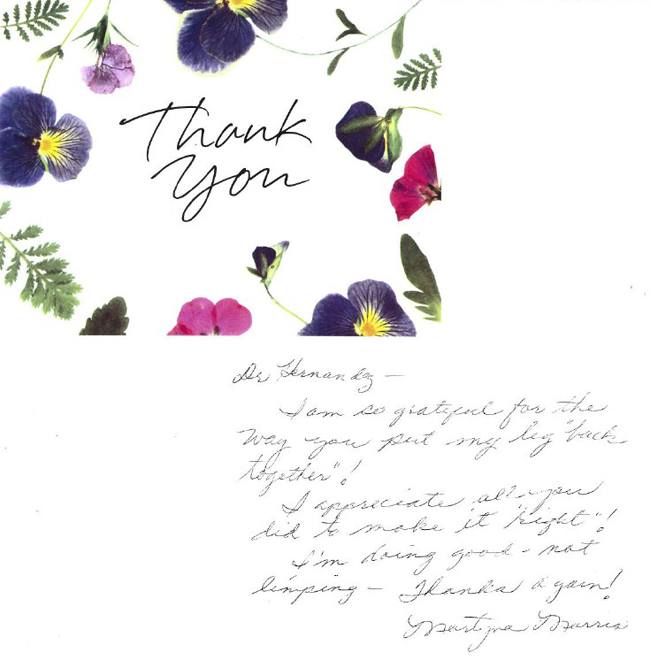 Thank
You
Dr Hernandez —
I am so grateful for the
way you put my leg "back
together"!
I appreciate all you
did to make it "right"!
I'm doing good - not
limping — Thanks again!
Morris